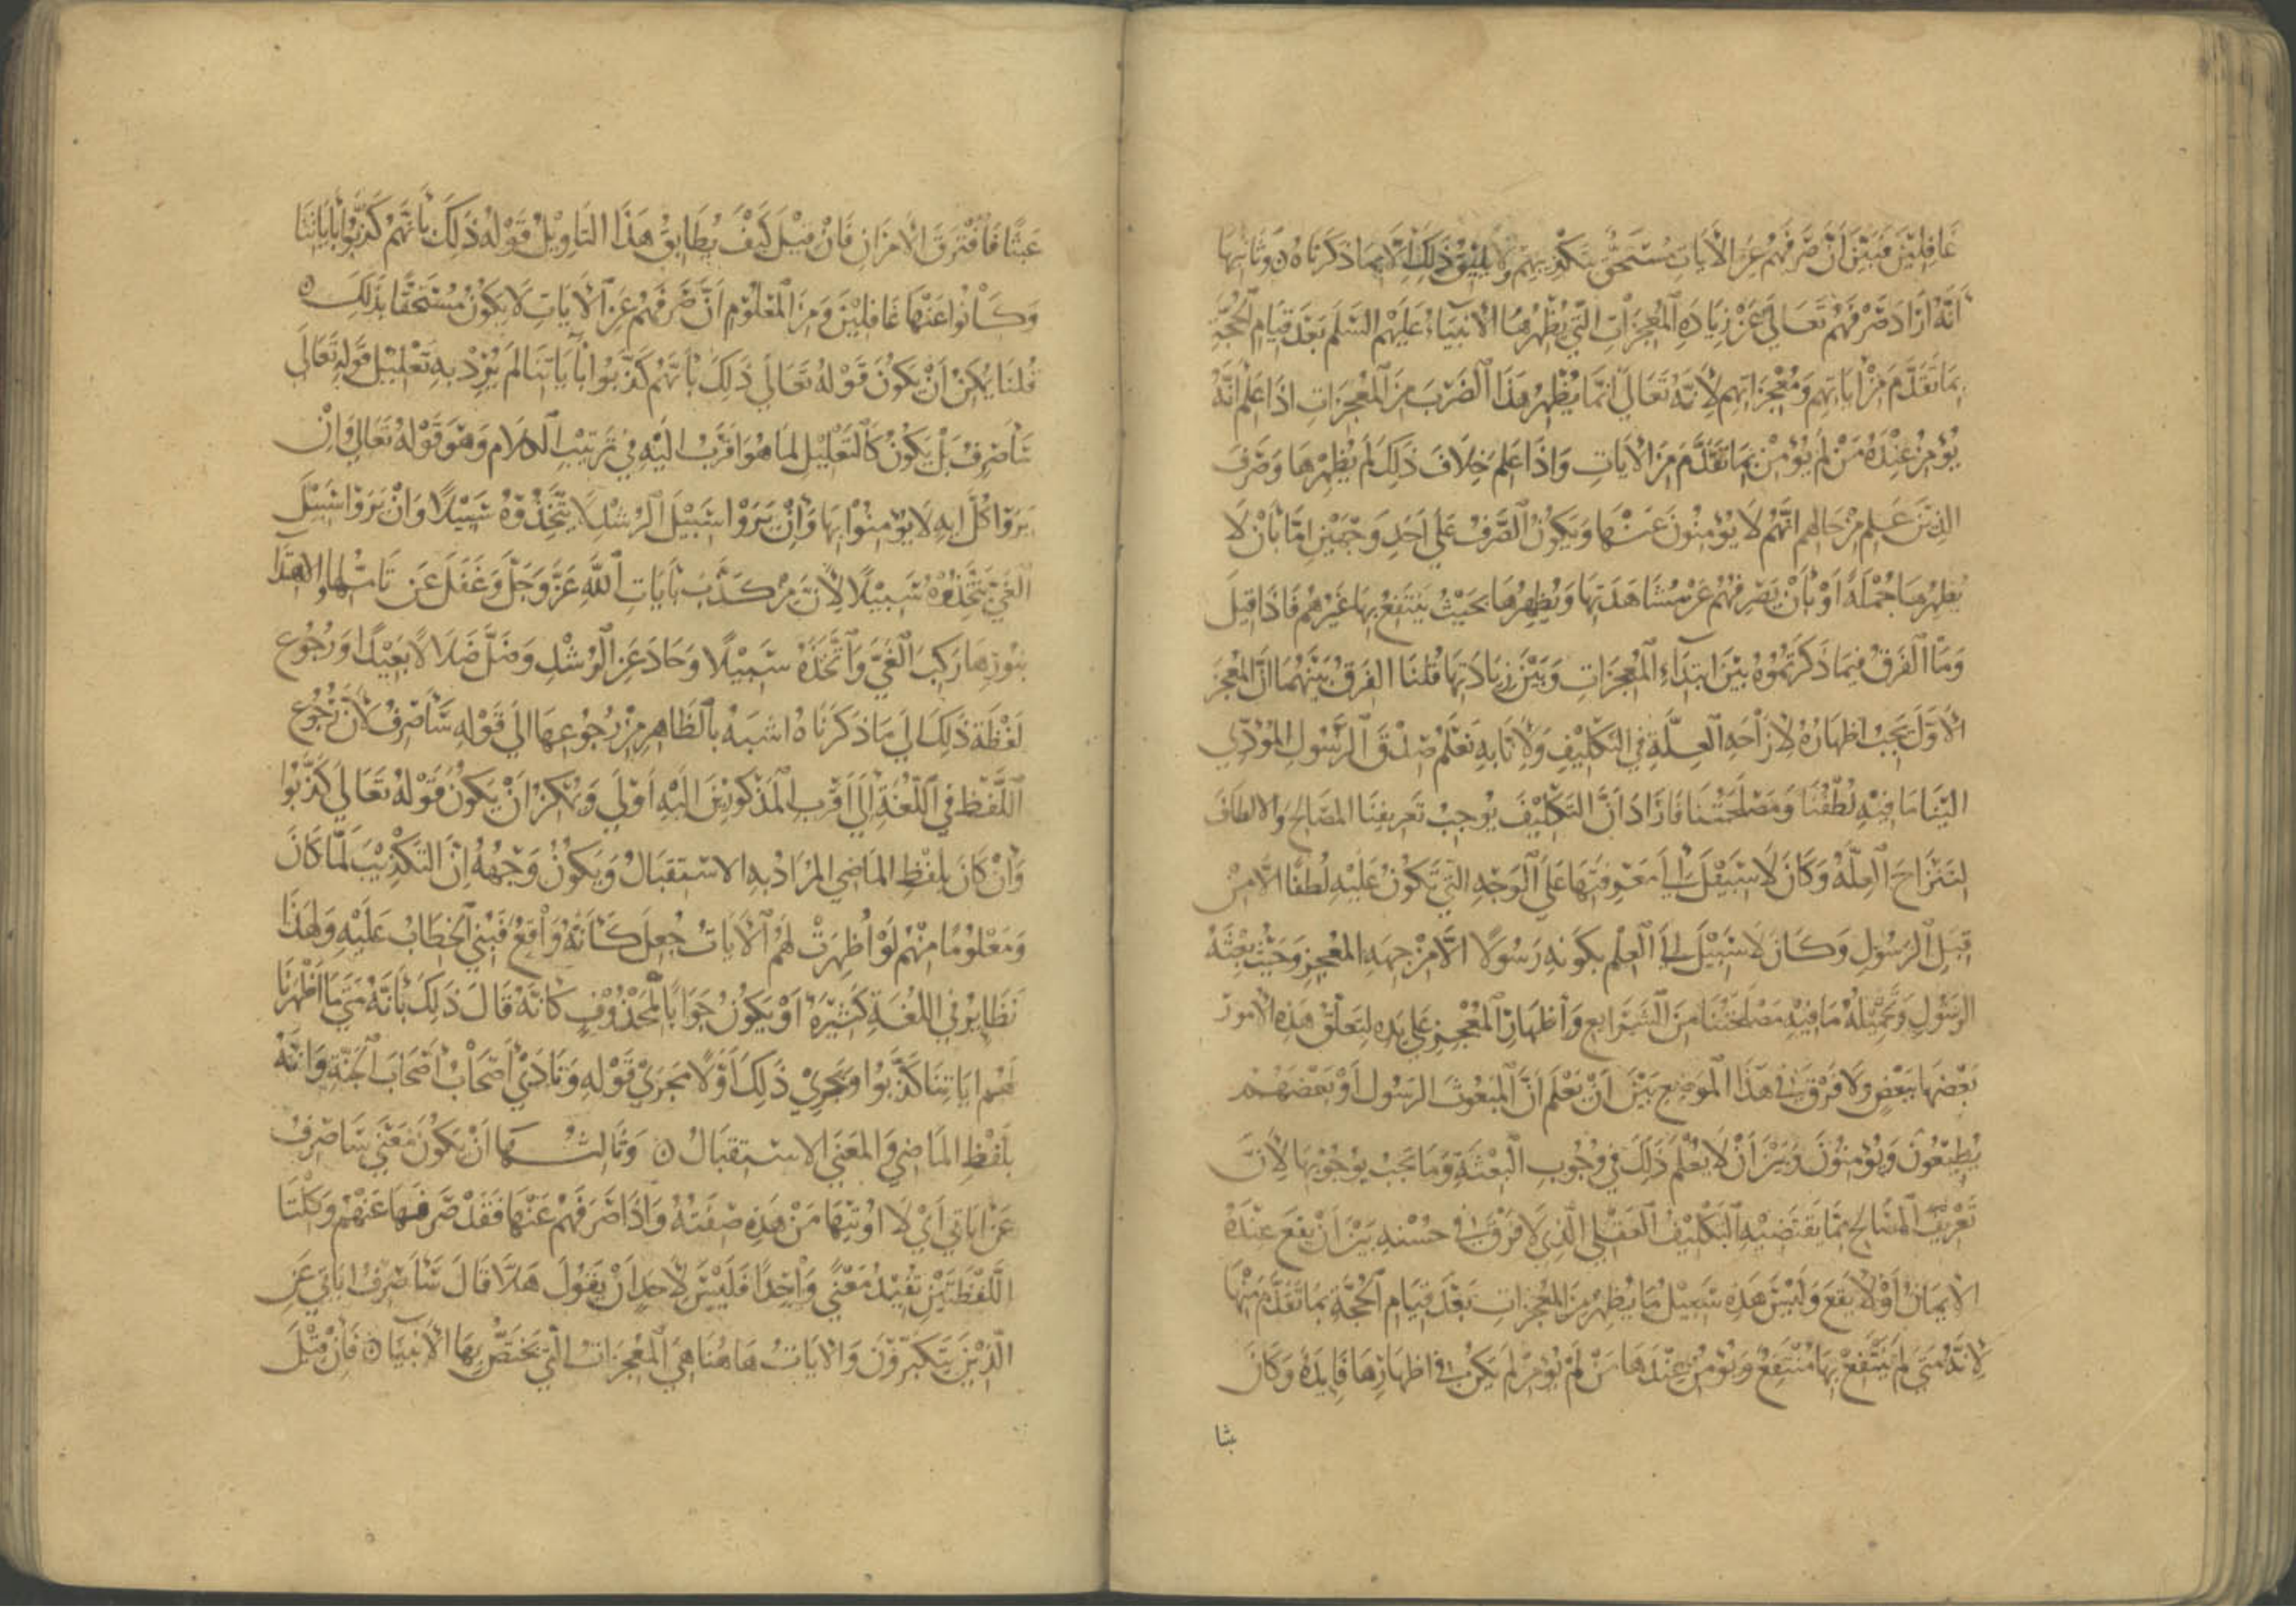 غَافِلِيْنَ فَبَيَّنَ أَنَّ صَرْفَهُمْ عَنِ الْآيَاتِ مُسْتَحَقٌّ بِتَكْذِيْبِهِمْ وَلَا يَلِيْقُ ذٰلِكَ إِلَّا بِمَا ذَكَرْنَاهُ ۝ وَثَانِيْهَا
أَنَّهُ أَرَادَ صَرْفَهُمْ تَعَالَى عَنْ زِيَادَةِ الْمُعْجِزَاتِ الَّتِي يُظْهِرُهَا الْأَنْبِيَاءُ عَلَيْهِمُ السَّلَم بَعْدَ قِيَامِ الْحُجَّةِ
بِمَا تَقَدَّمَ مِنْ آيَاتِهِمْ وَمُعْجِزَاتِهِمْ لِأَنَّهُ تَعَالَى إِنَّمَا يُظْهِرُ هَذَا الضَّرْبَ مِنَ الْمُعْجِزَاتِ إِذَا عَلِمَ أَنَّهُ
يُؤْمِنُ عِنْدَهُ مَنْ لَمْ يُؤْمِنْ بِمَا تَقَدَّمَ مِنَ الْآيَاتِ وَإِذَا عَلِمَ خِلَافَ ذَلِكَ لَمْ يُظْهِرْهَا وَصَرَفَ
الَّذِيْنَ عَلِمَ مِنْ حَالِهِمْ أَنَّهُمْ لَا يُؤْمِنُونَ عَنْهَا وَيَكُوْنُ الصَّرْفُ عَلَى أَحَدِ وَجْهَيْنِ إِمَّا بِأَنْ لَا
يُظْهِرَهَا جُمْلَةً أَوْ بِأَنْ يَصْرِفَهُمْ عَنْ مُشَاهَدَتِهَا وَيُظْهِرُهَا بِحَيْثُ يَنْتَفِعُ بِهَا غَيْرُهُمْ فَإِذَا قِيْلَ
وَمَا الْفَرْقُ فِيْمَا ذَكَرْتُمُوْهُ بَيْنَ ابْتِدَاءِ الْمُعْجِزَاتِ وَبَيْنَ زِيَادَتِهَا قُلْنَا الْفَرْقُ بَيْنَهُمَا أَنَّ الْمُعْجِزَ
الْأَوَّلَ يَجِبُ إِظْهَارُهُ لِإِزَاحَةِ الْعِلَّةِ فِي التَّكْلِيْفِ وَلِأَنَّا بِهِ نَعْلَمُ صِدْقَ الرَّسُوْلِ الْمُؤَدِّي
إِلَيْنَا مَا فِيْهِ لُطْفُنَا وَمَصْلَحَتُنَا فَإِذَا كَانَ التَّكْلِيْفُ يُوْجِبُ تَعْرِيْفَنَا الْمَصَالِحَ وَالْأَلْطَافَ
لِتَنْزَاحَ الْعِلَّةُ وَكَانَ لَا سَبِيْلَ إِلَى مَعْرِفَتِهَا عَلَى الْوَجْهِ الَّتِي تَكُوْنُ عَلَيْهِ لُطْفًا إِلَّا مِنْ
قِبَلِ الرَّسُوْلِ وَكَانَ لَا سَبِيْلَ إِلَى الْعِلْمِ بِكَوْنِهِ رَسُوْلًا إِلَّا مِنْ جِهَةِ الْمُعْجِزِ وَجَبَتْ بِعْثَةُ
الرَّسُوْلِ وَتَحْمِيْلُهُ مَا فِيْهِ مَصْلَحَتُنَا مِنَ الشَّرَايِعِ وَإِظْهَارُ الْمُعْجِزِ عَلَى يَدِهِ لِتَعَلُّقِ هَذِهِ الْأُمُوْرِ
بَعْضِهَا بِبَعْضٍ وَلَا فَرْقَ فِي هَذَا الْمَوْضِعِ بَيْنَ أَنْ يَعْلَمَ أَنَّ الْمَبْعُوْثَ الرَّسُوْل أَوْ بَعْضَهُمْ
يُطِيْعُوْنَ وَيُؤْمِنُوْنَ وَبَيْنَ أَنْ لَا يَعْلَمَ ذَلِكَ فِي وُجُوْبِ الْبَعْثَةِ وَمَا يَجِبُ بِوُجُوْبِهَا لِأَنَّ
تَعْرِيْفَ الْمَصَالِحِ مِمَّا يَقْتَضِيْهِ التَّكْلِيْفُ الْعَقْلِي الَّذِي لَا فَرْقَ فِي حُسْنِهِ بَيْنَ أَنْ يَقَعَ عِنْدَهُ
الْإِيْمَانُ أَوْ لَا يَقَعَ وَلَيْسَ هَذِهِ سَبِيْلُ مَا يُظْهِرُ مِنَ الْمُعْجِزَاتِ بَعْدَ قِيَامِ الْحُجَّةِ بِمَا تَقَدَّمَ مِنْهَا
لِأَنَّهُ مَتَى لَمْ يَنْتَفِعْ بِهَا مُنْتَفِعٌ وَيُؤْمِنْ عِنْدَهَا مَنْ لَمْ يُؤْمِنْ لَمْ يَكُنْ فِي إِظْهَارِهَا فَايِدَةٌ وَكَانَ
عَبَثًا فَافْتَرَقَ الْأَمْرَانِ فَإِنْ قِيْلَ كَيْفَ يُطَابِقُ هَذَا التَّاوِيْلُ قَوْلَهُ ذَلِكَ بِأَنَّهُمْ كَذَّبُوْا بِآيَاتِنَا
وَكَانُوا عَنْهَا غَافِلِيْنَ وَمِنَ الْمَعْلُوْمِ أَنَّ صَرْفَهُمْ عَنِ الْآيَاتِ لَا يَكُوْنُ مُسْتَحَقًّا بِذَلِكَ ۝
قُلْنَا يُمْكِنُ أَنْ يَكُوْنَ قَوْلُهُ تَعَالَى ذَلِكَ بِأَنَّهُمْ كَذَّبُوا بِآيَاتِنَا لَمْ يُرِدْ بِهِ تَعْلِيْلَ قَوْلِهِ تَعَالَى
سَأَصْرِفُ بَلْ يَكُوْنُ كَالتَّعْلِيْلِ لِمَا هُوَ أَقْرَبُ إِلَيْهِ فِي تَرْتِيْبِ الْكَلَامِ وَهُوَ قَوْلُهُ تَعَالَى وَإِنْ
يَرَوْا كُلَّ آيَةٍ لَا يُؤْمِنُوْا بِهَا وَإِنْ يَرَوْا سَبِيْلَ الرُّشْدِ لَا يَتَّخِذُوْهُ سَبِيْلًا وَإِنْ يَرَوْا سَبِيْلَ
الْغَيِّ يَتَّخِذُوْهُ سَبِيْلًا لِأَنَّ مَنْ كَذَّبَ بِآيَاتِ اللّٰهِ عَزَّ وَجَلَّ وَغَفَلَ عَنْ تَامُّلِهَا وَالِاهْتِدَا
بِنُوْرِهَا رَكِبَ الْغَيَّ وَاتَّخَذَهُ سَبِيْلًا وَحَادَ عَنِ الرُّشْدِ وَضَلَّ ضَلَالًا بَعِيْدًا وَرُجُوْعُ
لَفْظَةِ ذَلِكَ إِلَى مَا ذَكَرْنَاهُ اشْبَهُ بِالظَّاهِرِ مِنْ رُجُوْعِهَا إِلَى قَوْلِهِ سَأَصْرِفُ لِأَنَّ رُجُوْعَ
اللَّفْظِ فِي اللُّغَةِ إِلَى أَقْرَبِ الْمَذْكُوْرِيْنَ إِلَيْهِ أَوْلَى وَيُمْكِنُ أَنْ يَكُوْنَ قَوْلُهُ تَعَالَى كَذَّبُوْا
وَإِنْ كَانَ بِلَفْظِ الْمَاضِي الْمُرَادُ بِهِ الِاسْتِقْبَالُ وَيَكُوْنُ وَجْهُهُ إِنَّ التَّكْذِيْبَ لَمَّا كَانَ
وَمَعْلُوْمًا مِنْهُمْ لَوْ أُظْهِرَتْ لَهُمُ الْآيَاتُ جُعِلَ كَأَنَّهُ وَاقِعٌ فَبُنِيَ الْخِطَابُ عَلَيْهِ وَلِهَذَا
نَظَايِرُ فِي اللُّغَةِ كَثِيْرَةٌ أَوْ يَكُوْنُ جَوَابًا لِمَحْذُوْفٍ كَأَنَّهُ قَالَ ذَلِكَ بِأَنَّهُ مَتَى مَا أَظْهَرْنَا
لَهُمْ آيَاتِنَا كَذَّبُوا وَيَجْرِي ذَلِكَ أَوَّلًا مَجْرَى قَوْلِهِ وَنَادَى أَصْحَابُ أَصْحَابَ الْجَنَّةِ وَأَنَّهُ
بِلَفْظِ الْمَاضِي وَالْمَعْنَى الِاسْتِقْبَالُ ۝ وَثَالِثُهَا أَنْ يَكُوْنَ مَعْنَى سَأَصْرِفُ
عَنْ آيَاتِي أَيْ لَا اُوْتِيْهَا مَنْ هَذِهِ صِفَتُهُ وَإِذَا صَرَفَهُمْ عَنْهَا فَقَدْ صَرَفَهَا عَنْهُمْ وَكِلْتَا
اللَّفْظَتَيْنِ تُفِيْدُ مَعْنًى وَاحِدًا فَلَيْسَ لِأَحَدٍ أَنْ يَقُوْلَ هَلَّا قَالَ سَأَصْرِفُ آيَاتِي عَنِ
الَّذِيْنَ يَتَكَبَّرُوْنَ وَالْآيَاتُ هَاهُنَا هِيَ الْمُعْجِزَاتُ الَّتِي يَخْتَصُّ بِهَا الْأَنْبِيَا ۝ فَإِنْ قِيْلَ